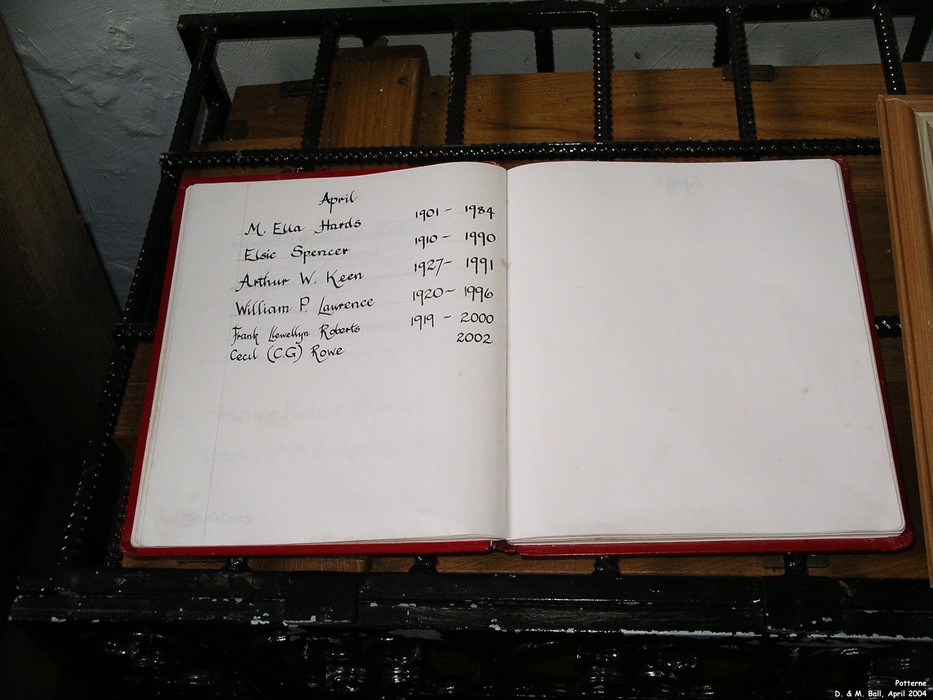 April
M. Ella Hards 1901 - 1984
Elsie Spencer 1910 - 1990
Arthur W. Keen 1927 - 1991
William P. Lawrence 1920 - 1996
Frank Llewellyn Roberts 1919 - 2000
Cecil (C.G) Rowe 2002
Potterne
D. & M. Ball, April 2004